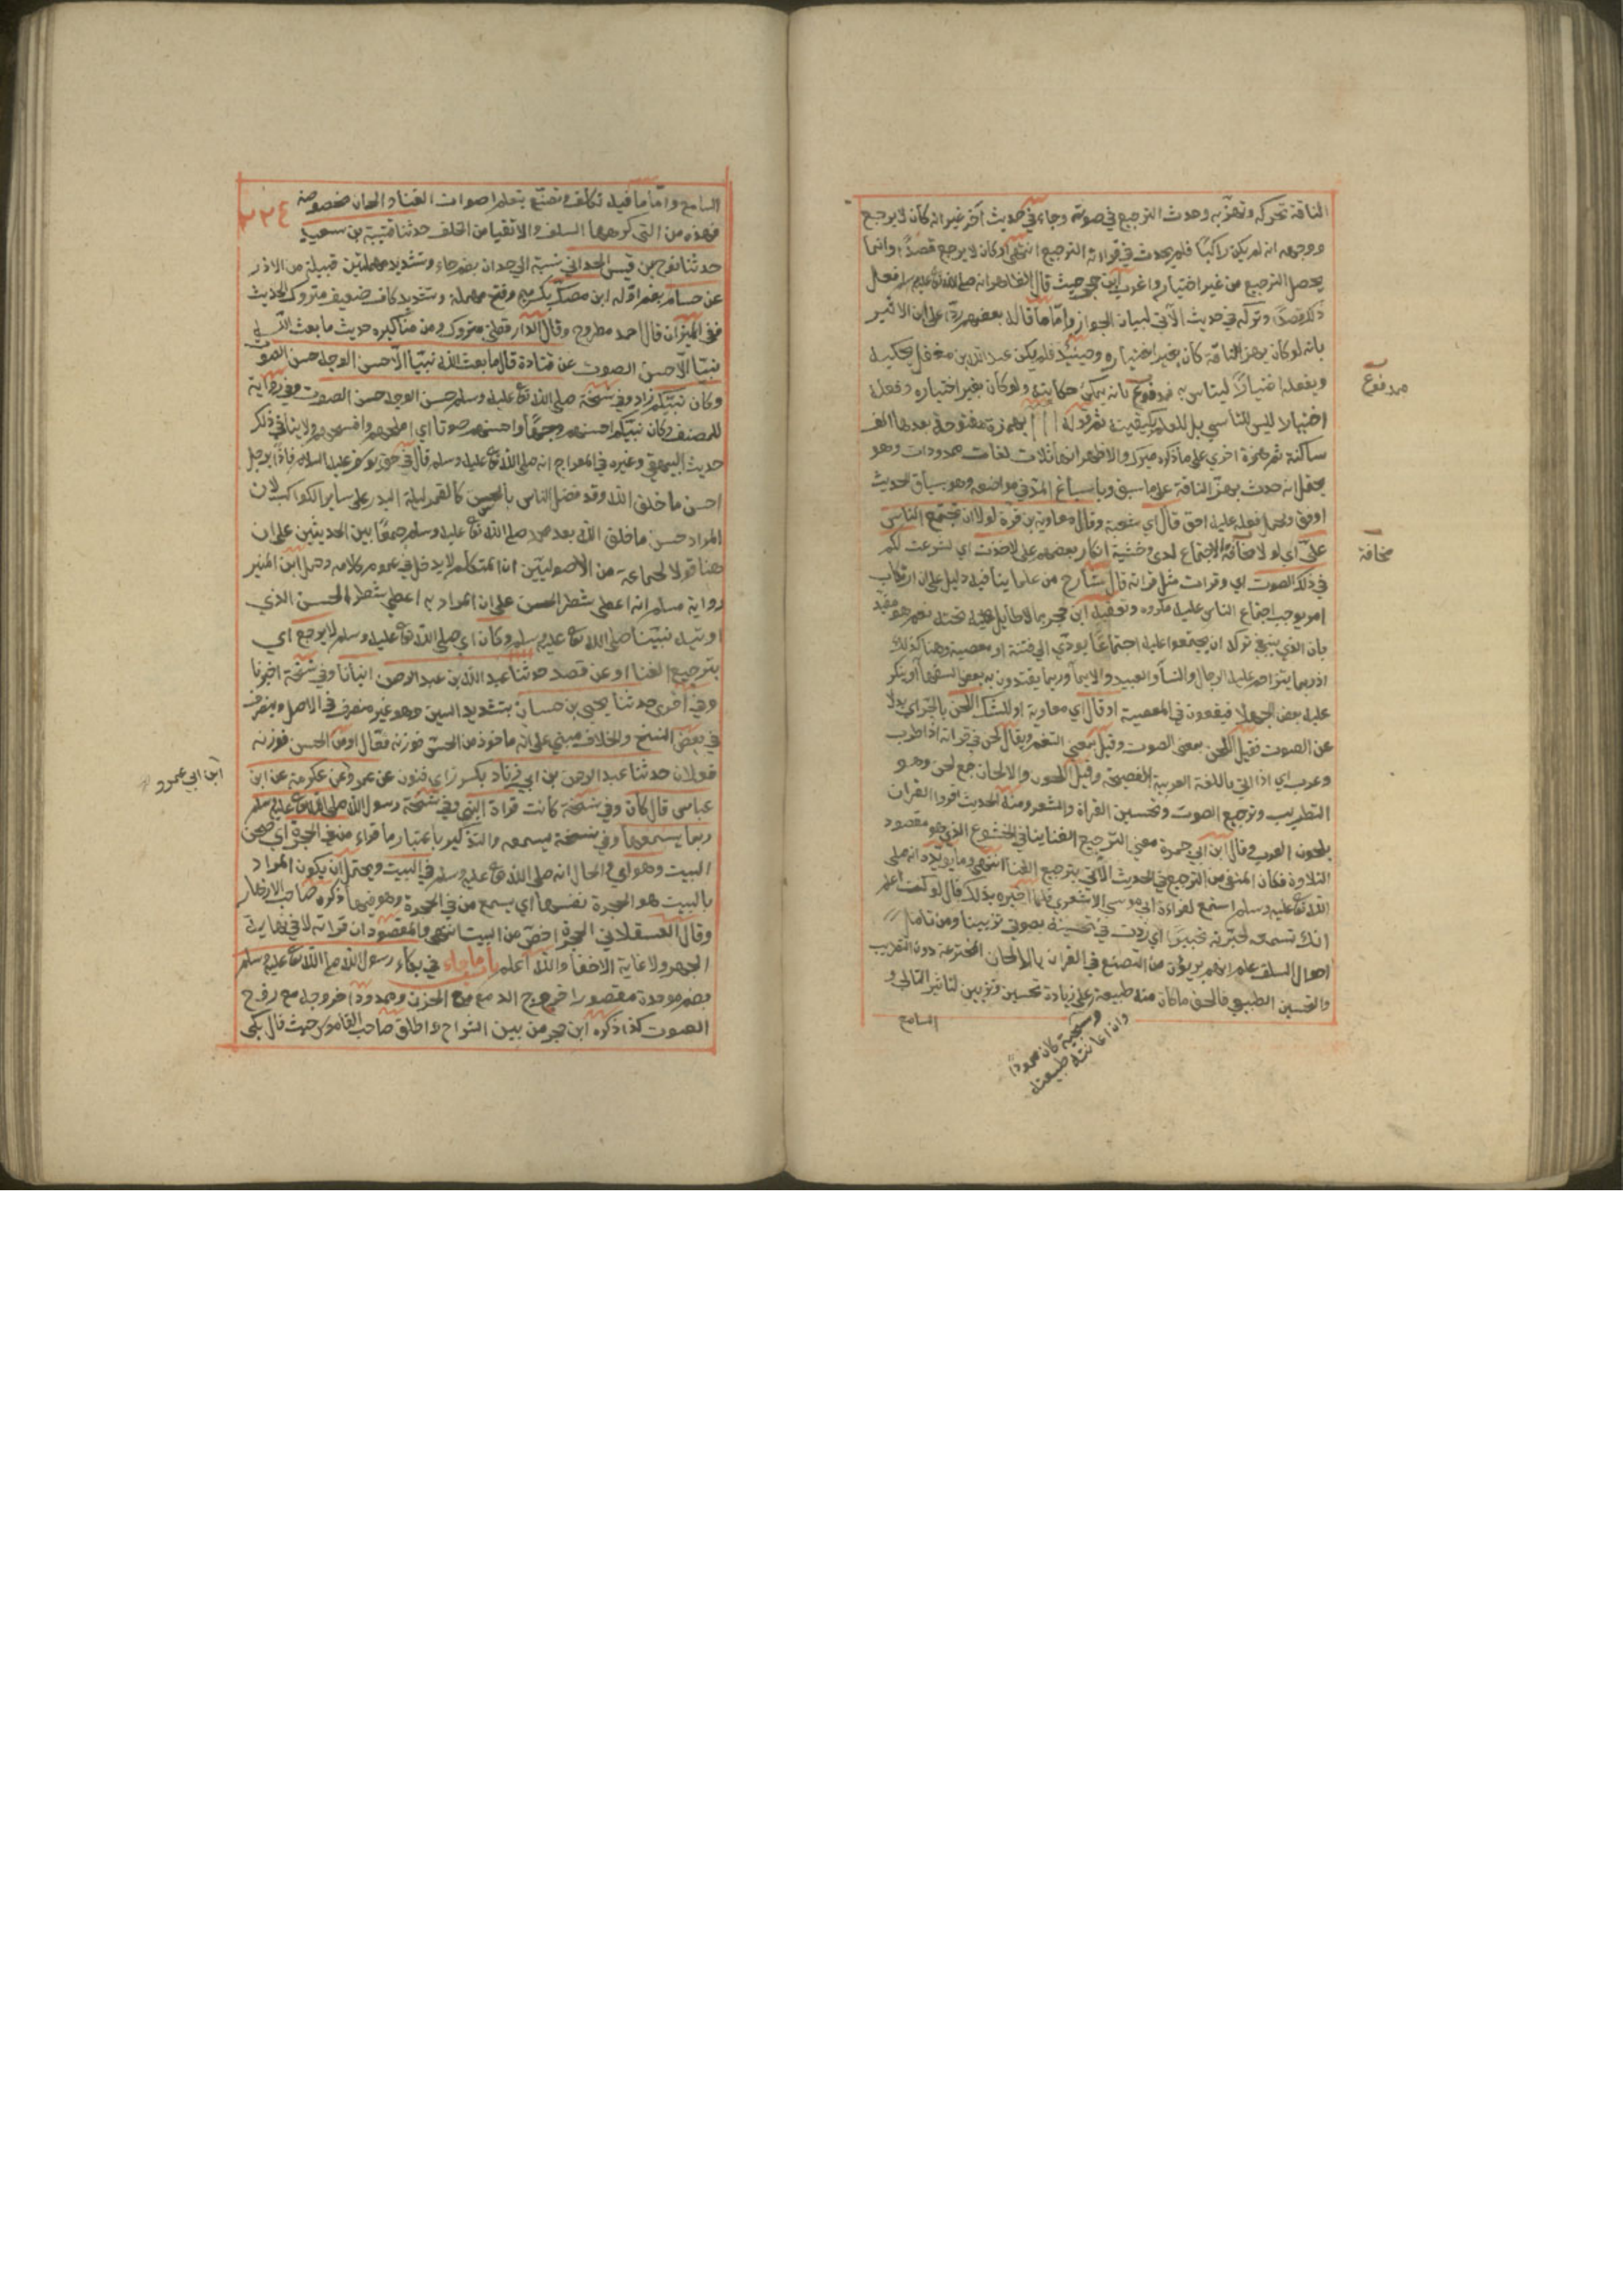 الناقة تحركه وتهزه وحدث الترجيع في صوته وجاء في حديث آخر غير انه كان لا يرجع
ووجهه انه لم يكن راكبا فلم يحدث في قراءته الترجيع انتهى او كان لا يرجع قصدا وانما
يحصل الترجيع من غير اختيار واغرب ابن حجر حيث قال الظاهر انه صلى الله تع عليه وسلم فعل
ذلك قصدا وتركه في حديث الآتي لبيان الجواز واما ما قاله بعضهم ردا على ابن الاثير
بانه لو كان بهز الناقة كان بغير اختياره وحينئذ فلم يكن عبد الله بن مغفل يحكيه
ويفعله اختيارا ليتاسى به فمدفوع بانه يمكن حكايته ولو كان بغير اختياره وفعله
اختيارا ليس للتاسي بل للعلم بكيفيته ثم قوله ااا بهمزة مفتوحة بعدها الف
ساكنة ثم همزة اخرى على ما ذكره ميرك والاظهر انها ثلاث لغات ممدودات وهو
يحتمل انه حدث بهز الناقة على ما سبق وباشباع المد في مواضعه وهو بسياق الحديث
اوفق وبحمل فعله عليه احق قال اي شعبة وقال معاوية بن قرة لولا ان يجتمع الناس
علي اي لولا مخافة الاجتماع لدي وخشية انكار بعضهم علي لاخذت اي لشرعت لكم
في ذلك الصوت اي وقرات مثل قراته قال شارح من علماينا فيه دليل على ان ارتكاب
امر يوجب اجتماع الناس عليه مكروه وتعقبه ابن حجر بما لا طايل تحته نعم هو مفيد
بان الذي ينبغي تركه ان يجتمعوا عليه اجتماعا يودي الى فتنة او معصية وهنا كذلك
اذ ربما يتزاحم عليه الرجال والنسا والعبيد والاما وربما يقتدون به بعض السفها او ينكر
عليه بعض الجهلا فيقعون في المعصية او قال اي معاوية او للشك اللحن بالجر اي بدلا
عن الصوت فقيل اللحن بمعنى الصوت وقيل بمعنى النغم ويقال لحن في قراته اذا طرب
وغرب اي اذا اتى باللغة العربية الفصيحة وقيل اللحون والالحان جمع لحن وهو
التطريب وترجيع الصوت وتحسين القراة والشعر ومنه الحديث اقروا القران
بلحون العرب وقال ابن ابي جمرة معنى الترجيع الغنا ينافي الخشوع الذي هو مقصود
التلاوة فكان المنفي من الترجيع في الحديث الآتي بترجيع الغنا انتهى ومما يويده انه صلى
الله تع عليه وسلم استمع لقراءة ابي موسى الاشعري فلما اخبره بذلك قال لو كنت اعلم
انك تسمعه لحبرته تحبيرا اي زدت في تحسينه بصوتي تزيينا ومن تامل
احوال السلف علم انهم بريئون من التصنع في القران بالالحان المخترعة دون التطريب
والتحسين الطبيعي فالحق ما كان منه طبيعة وسجية كان محمودا وان اعانته طبيعته على زيادة تحسين وتزيين لتاثير التالي و
السامع
مدفوع
مخافة
السامع واما ما فيه تكلف وتصنع بتعلم اصوات الغناء والحان مخصوصة
فهذه من التي كرهها السلف والاتقيا من الخلف حدثنا قتيبة بن سعيد
حدثنا نوح بن قيس الحداني نسبة الى حدان بضم حاء وتشديد مهملتين قبيلة من الازد
عن حسام بضم اوله ابن مصك بكسر ميم وفتح مهملة وتشديد كاف ضعيف متروك الحديث
ففي الميزان قال احمد مطروح وقال الدارقطني متروك ومن مناكيره حديث ما بعث الله
نبيا الا حسن الصوت عن قتادة قال ما بعث الله نبيا الا حسن الوجه حسن الصوت
وكان نبيكم زاد وفي نسخة صلى الله تع عليه وسلم حسن الوجه حسن الصوت وفي رواية
للمصنف وكان نبيكم احسنهم وجها واحسنهم صوتا اي املحهم وافصحهم ولا ينافي ذلك
حديث البيهقي وغيره في المعراج انه صلى الله تع عليه وسلم قال في حق يوسف عليه السلام فاذا برجل
احسن ما خلق الله وقد فضل الناس بالحسن كالقمر ليلة البدر على ساير الكواكب لان
المراد حسن ما خلق الله بعد محمد صلى الله تع عليه وسلم جمعا بين الحديثين على ان
هنا قولا لجماعة من الاصوليين ان المتكلم لا يدخل في عموم كلامه وحمل ابن المنير
رواية مسلم انه اعطي شطر الحسن على ان المراد به اعطي شطر الحسن الذي
اوتيه نبينا صلى الله تع عليه وسلم وكان اي صلى الله تع عليه وسلم لا يرجع اي
بترجيع الغنا او عن قصد حدثنا عبد الله بن عبد الرحمن انبانا وفي نسخة اخبرنا
وفي اخرى حدثنا يحيى بن حسان بتشديد السين وهو غير منصرف في الاصل ومنصرف
في بعض النسخ والخلاف مبني على انه ماخوذ من الحسن فوزنه فعال او من الحس فوزنه
فعلان حدثنا عبد الرحمن بن ابي زناد بكسر زاي فنون عن عمرو عن عكرمة عن ابن
عباس قال كان وفي نسخة كانت قراة النبي وفي نسخة رسول الله صلى الله تع عليه وسلم
ربما يسمعها وفي نسخة يسمعه والتذكير باعتبار ما قراء من في الحجرة اي صحن
البيت وهو اي والحال انه صلى الله تع عليه وسلم في البيت ويحتمل ان يكون المراد
بالبيت هو الحجرة نفسها اي يسمع من في الحجرة وهو فيها ذكره صاحب الازهار
وقال العسقلاني الحجرة اخص من البيت انتهى والمقصود ان قراته لا في نهاية
الجهر ولا غاية الاخفا والله اعلم باب ما جاء في بكاء رسول الله صلى الله تع عليه وسلم
بضم موحدة مقصورا خروج الدمع مع الحزن وممدودا خروجه مع رفع
الصوت كذا ذكره ابن حجر من بين الشراح واطلق صاحب القاموس حيث قال بكى
ابن ابي عمرو
٢٢٤